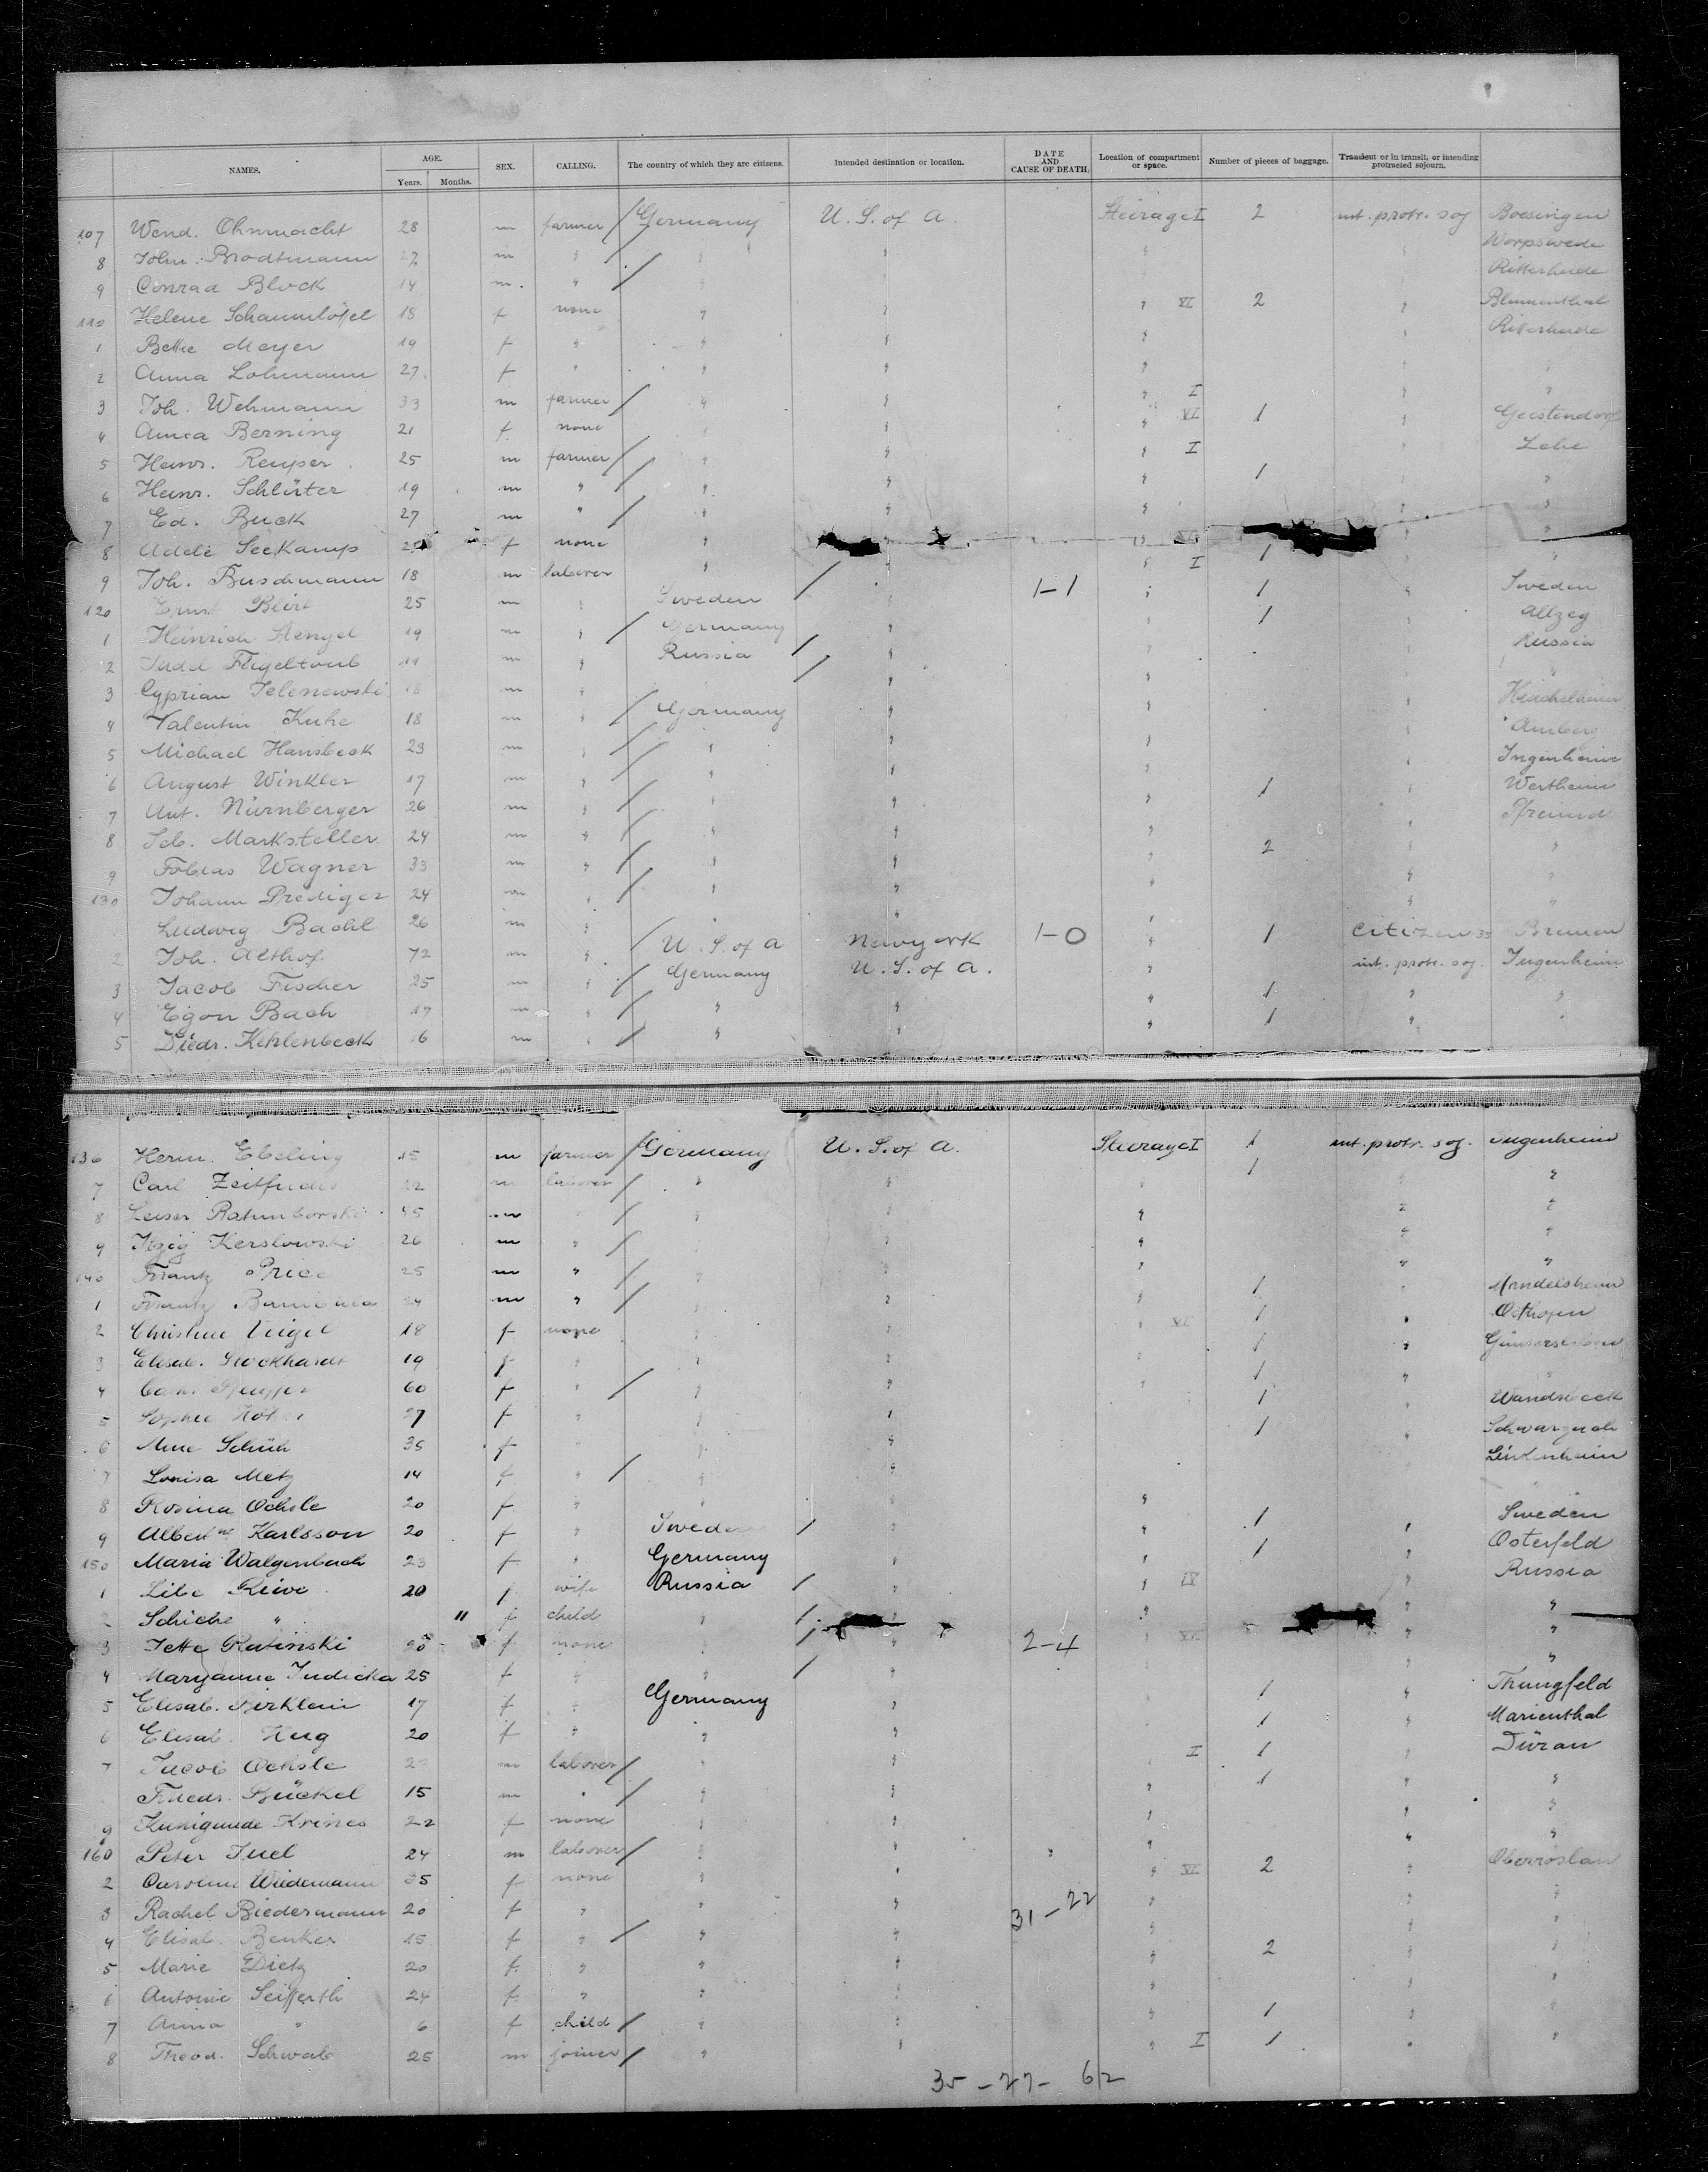 NAMES. AGE. Years. Months. SEX. CALLING. The country of which they are citizens. Intended destination or location. DATE AND CAUSE OF DEATH. Location of compartment or space. Number of pieces of baggage. Transient or in transit, or intending protracted sojourn.
107 Wend. Ohnmacht 28 m farmer Germany U. S. of A. Steerage I 2 int. protr. soj Boesingen
8 John. Brodtmann m " " " " " Worpswede
9 Conrad Block 14 m. " " Ritterhude
110 Helene Schaumlöffel 18 f none " " " VI 2 " Blumenthal
1 Bette Meyer 19 f " " " " " Ritterhude
2 Anna Lohmann 27 f " " " " " "
3 Joh. Wehmann 33 m farmer " " " I " "
4 Anna Berning 21 f none " " VI 1 " Geestendorf
5 Heinr. 25 m farmer " " " I Lehe
6 Heinr. Schlüter 19 m " " " " 1 "
7 Ed. Buck 27 m " " " " " "
8 Adele Seekamp f none " " " VI " "
9 Joh. Buschmann 18 m laborer " " I 1 "
120 Ernst 25 m " Sweden " 1-1 " 1 " Sweden
1 Heinrich Stengel 19 m " Germany " " 1 "
2 Judel Flügeltaub 11 m " Russia " " Russia
3 Cyprian 18 m " " " "
4 Valentin Kuhe 18 m " Germany " "
5 Michael Hansbeck 23 m " " " " Amberg
6 August Winkler 17 m " " " " Ingenheim
7 Ant. Nürnberger 26 m " " " " 1 Wertheim
8 Seb. Marksteller 24 m " " " " " Pfreimd
9 Tobias Wagner 33 m " " " " 2 " "
130 Johann Prediger 24 m " " " " " "
Ludwig Bachl 26 m " " " " " "
2 Joh. Althof 72 m " U. S. of A Newyork 1-0 " 1 Citizen Bremen
3 Jacob Fischer 25 m " Germany U. S. of A. " int. protr. soj. Ingenheim
4 Egon Bach 17 m " " " " 1 " "
5 Diedr. Kehlenbeck 16 m " " " " 1 " "
136 Herm. Ebeling 15 m farmer Germany U. S. of A. Steerage I 1 int. protr. soj. Ingenheim
7 Carl Zeitfuchs 22 m laborer " " " 1 " "
8 Leiser 45 m " " " " " "
9 Itzig Kerslowski 26 m " " " " " "
140 Frantz Price 25 m " " " " " "
1 Frantz 24 m " " " " 1 " Mandelsheim
2 Christine Veigel 18 f none " " " VI 1 " Osthofen
3 Elisab. Stockhardt 19 f " " " " 1 "
4 60 f " " " " 1 " "
5 Sophie 27 f " " " 1 " Wandsbeck
6 Anne Schüh 35 f " " " 1 "
7 Louisa Metz 14 f " " "
8 Rosina Ochsle 20 f " " " "
9 Albertne Karlsson 20 f " Sweden " " 1 " Sweden
150 Maria Walgenbach 23 f " Germany " " 1 " Osterfeld
1 Libe 20 f wife Russia " " IV " Russia
2 Schiche " 11 f child " " " " "
3 Jette Ratinski f none " " 2-4 " VI " "
4 Maryanne Judicka 25 f " " " " "
5 Elisab. Birklein 17 f " Germany " 1 " Thungfeld
6 Elisab. Hug 20 f " " " 1 " Marienthal
7 Jacob Ochsle m laborer " " " I 1 " Düran
Friedr. Bückel 15 m " " " " 1 " "
9 Kunigunde Krines 22 f none " " " " "
160 Peter Juel 24 m laborer " " " " "
2 Caroline Wiedemann 35 f none " " " VI 2 " Oberröslau
3 Rachel Biedermann 20 f " " " 31-22 " " "
4 Elisab. Benker 15 f " " " " " "
5 Marie Dietz 20 f " " " " 2 " "
6 Antonie Seifferth 24 f " " " " " "
7 Anna " 6 f child " " " 1 " "
8 Theod. Schwab 25 m joiner " " " I 1 " "
35-27-62